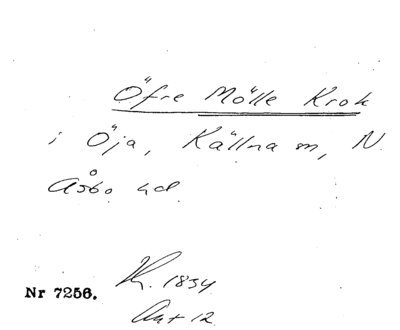 Öfre Mölle Krok
i Öja, Källna sn, N.
Åsbo hd.
Nr 7256.
Kr. 1834
Akt 12